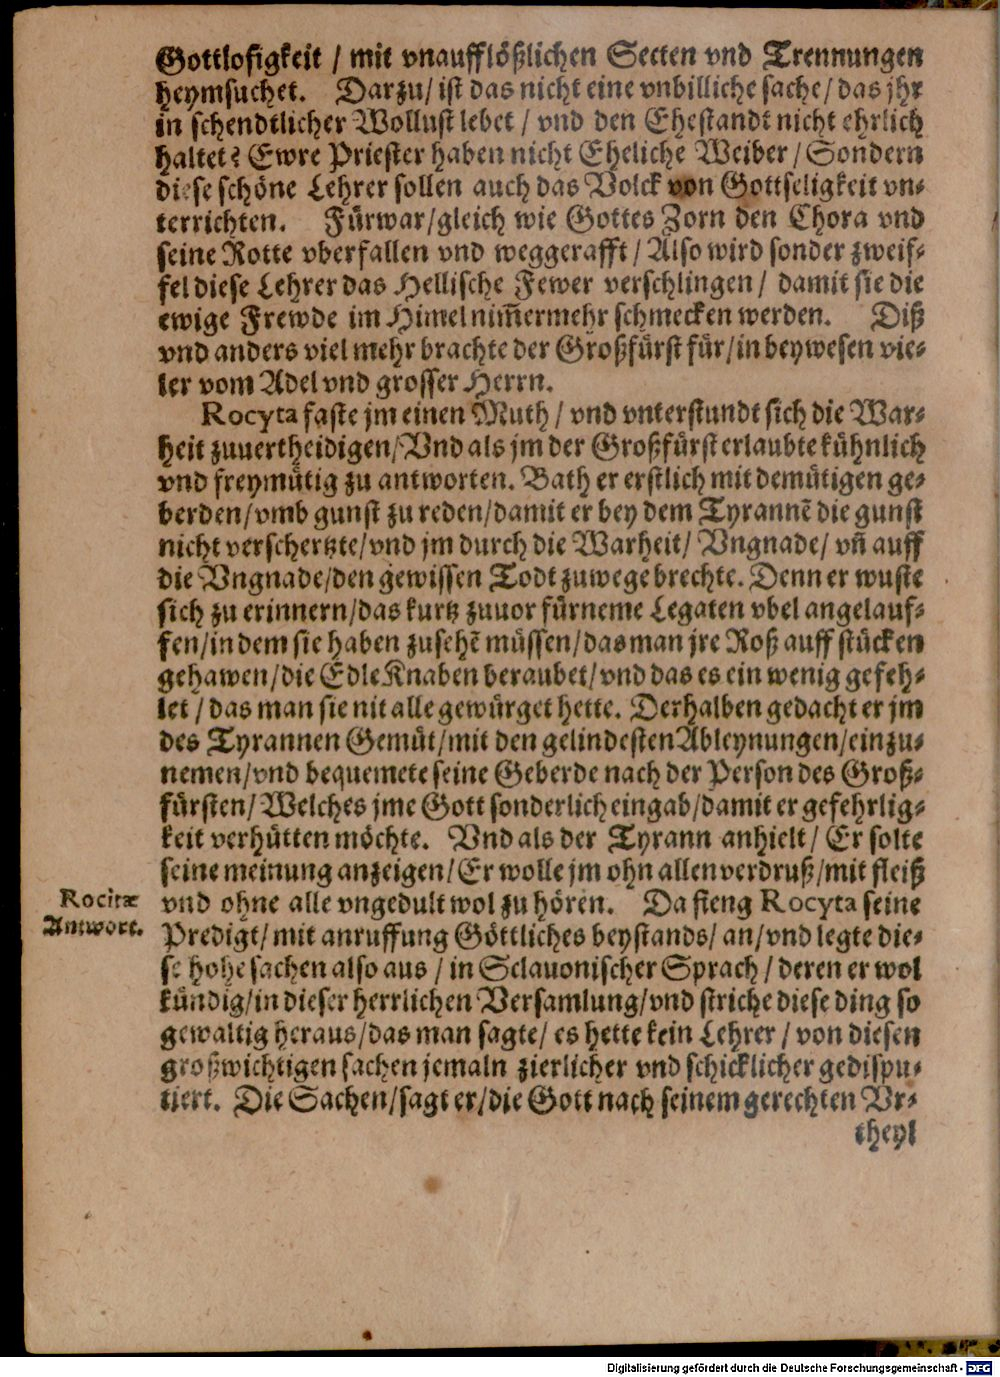 Gottlosigkeit / mit vnaufflößlichen Secten vnd Trennungen
heymsuchet. Darzu/ ist das nicht eine vnbilliche sache/ das jhr
in schendtlicher Wollust lebet / vnd den Ehestandt nicht ehrlich
haltet? Ewre Priester haben nicht Eheliche Weiber / Sondern
diese schöne Lehrer sollen auch das Volck von Gottseligkeit vn-
terrichten. Fürwar/gleich wie Gottes Zorn den Chora vnd
seine Rotte vberfallen vnd weggerafft / Also wird sonder zweif-
fel diese Lehrer das Hellische Fewer verschlingen / damit sie die
ewige Frewde im Himel nim̃ermehr schmecken werden. Diß
vnd anders viel mehr brachte der Großfürst für/in beywesen vie-
ler vom Adel vnd grosser Herrn.
Rocyta faste jm einen Muth / vnd vnterstundt sich die War-
heit zuuertheidigen/Vnd als jm der Großfürst erlaubte kühnlich
vnd freymütig zu antworten. Bath er erstlich mit demütigen ge-
berden/vmb gunst zu reden/damit er bey dem Tyrannẽ die gunst
nicht verschertzte/vnd jm durch die Warheit/ Vngnade/ vñ auff
die Vngnade/den gewissen Todt zuwege brechte. Denn er wuste
sich zu erinnern/das kurtz zuuor fürneme Legaten vbel angelauf-
fen/in dem sie haben zusehẽ müssen/das man jre Roß auff stücken
gehawen/die Edle Knaben beraubet/vnd das es ein wenig gefeh-
let / das man sie nit alle gewürget hette. Derhalben gedacht er jm
des Tyrannen Gemüt/mit den gelindesten Ableynungen/einzu-
nemen/vnd bequemete seine Geberde nach der Person des Groß-
fürsten/ Welches jme Gott sonderlich eingab/damit er gefehrlig-
keit verhütten möchte. Vnd als der Tyrann anhielt/ Er solte
seine meinung anzeigen/Er wolle jm ohn allen verdruß/mit fleiß
vnd ohne alle vngedult wol zu hören. Da fieng Rocyta seine
Rocitæ
Antwort.
Predigt/ mit anruffung Göttliches beystands/ an/vnd legte die-
se hohe sachen also aus / in Sclauonischer Sprach / deren er wol
kündig/in dieser herrlichen Versamlung/vnd striche diese ding so
gewaltig heraus/das man sagte/ es hette kein Lehrer / von diesen
großwichtigen sachen jemaln zierlicher vnd schicklicher gedispu-
tiert. Die Sachen/sagt er/die Gott nach seinem gerechten Vr-
theyl
Digitalisierung gefördert durch die Deutsche Forschungsgemeinschaft - DFG